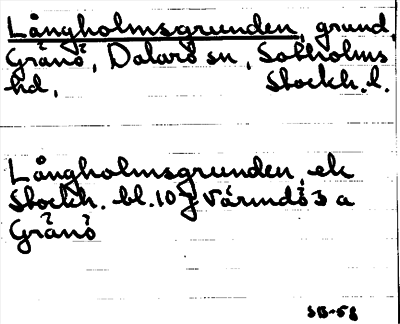 Långholmsgrunden, grund,
Gränö, Dalarö sn, Sotholms
hd, Stockh. l.
Långholmsgrunden, ek
Stockh. bl. 10 j Värmdö 3 a
Gränö